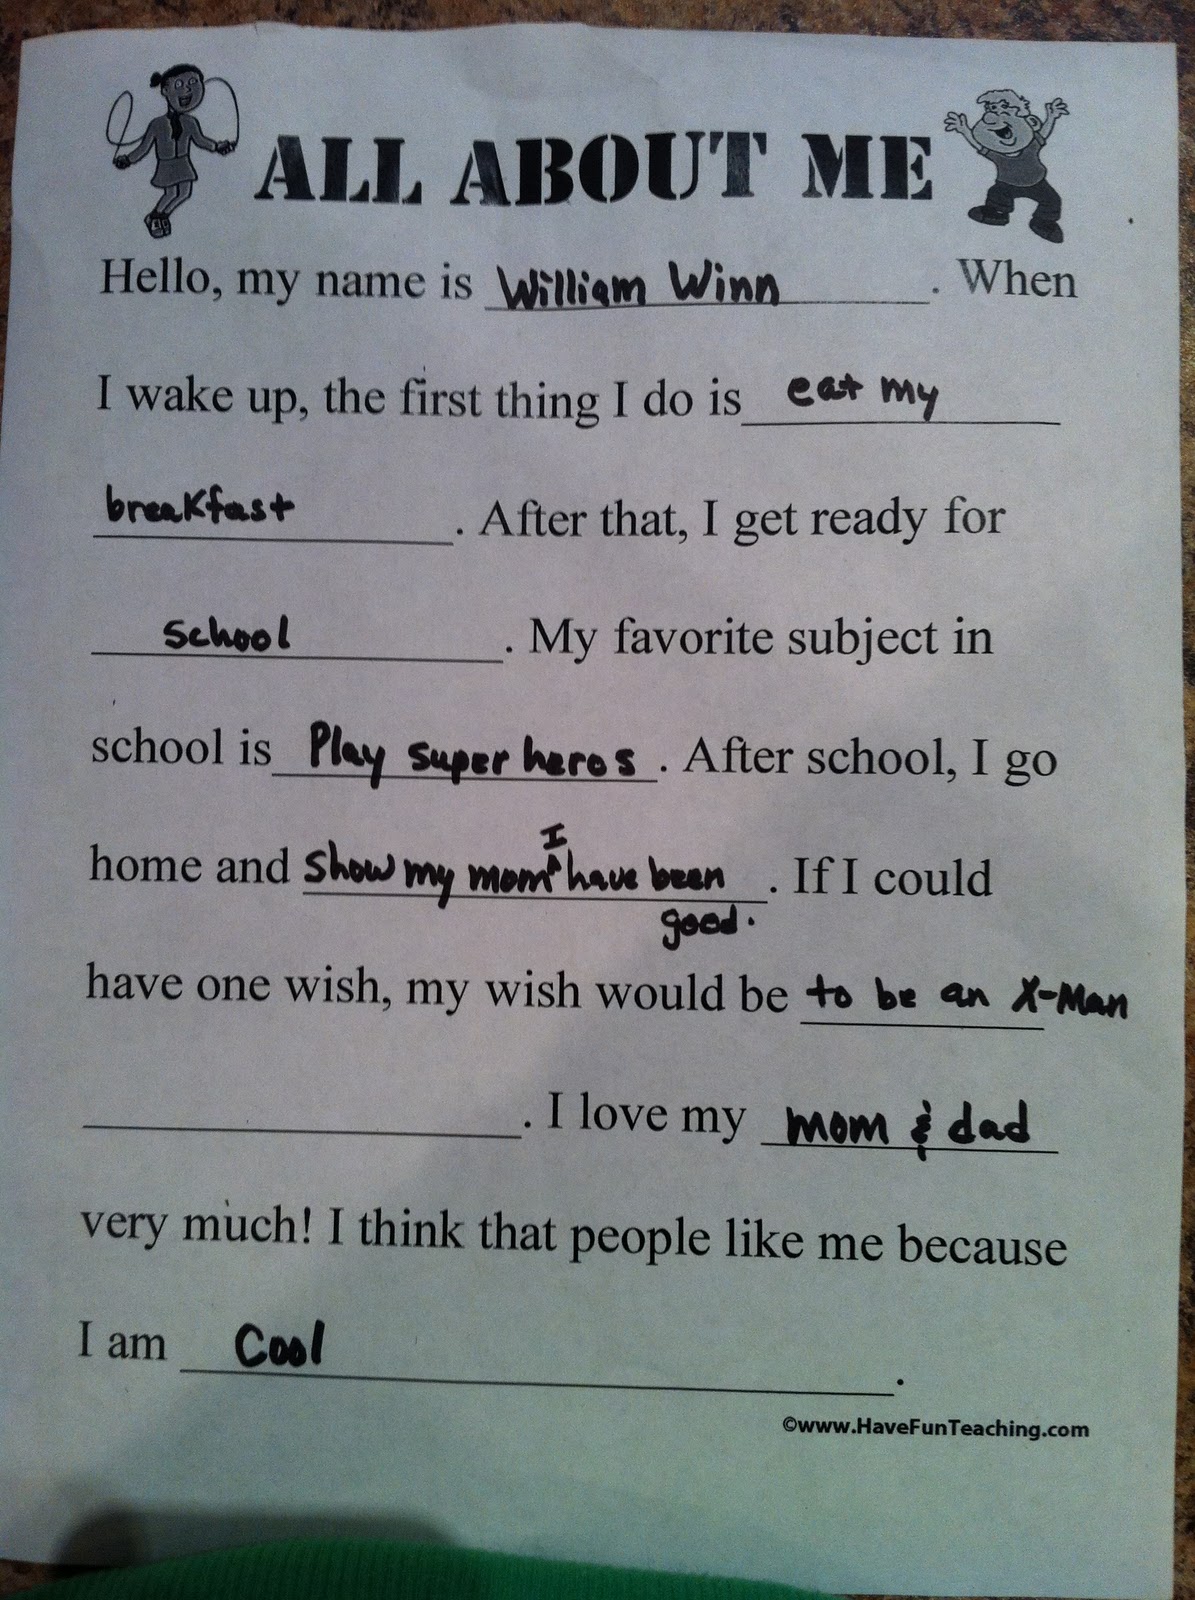 ALL ABOUT ME
Hello, my name is William Winn. When
I wake up, the first thing I do is eat my
breakfast. After that, I get ready for
school. My favorite subject in
school is Play super heros. After school, I go
home and show my mom I have been. If I could
good.
have one wish, my wish would be to be an X-Man
. I love my mom & dad
very much! I think that people like me because
I am Cool.
©www.HaveFunTeaching.com